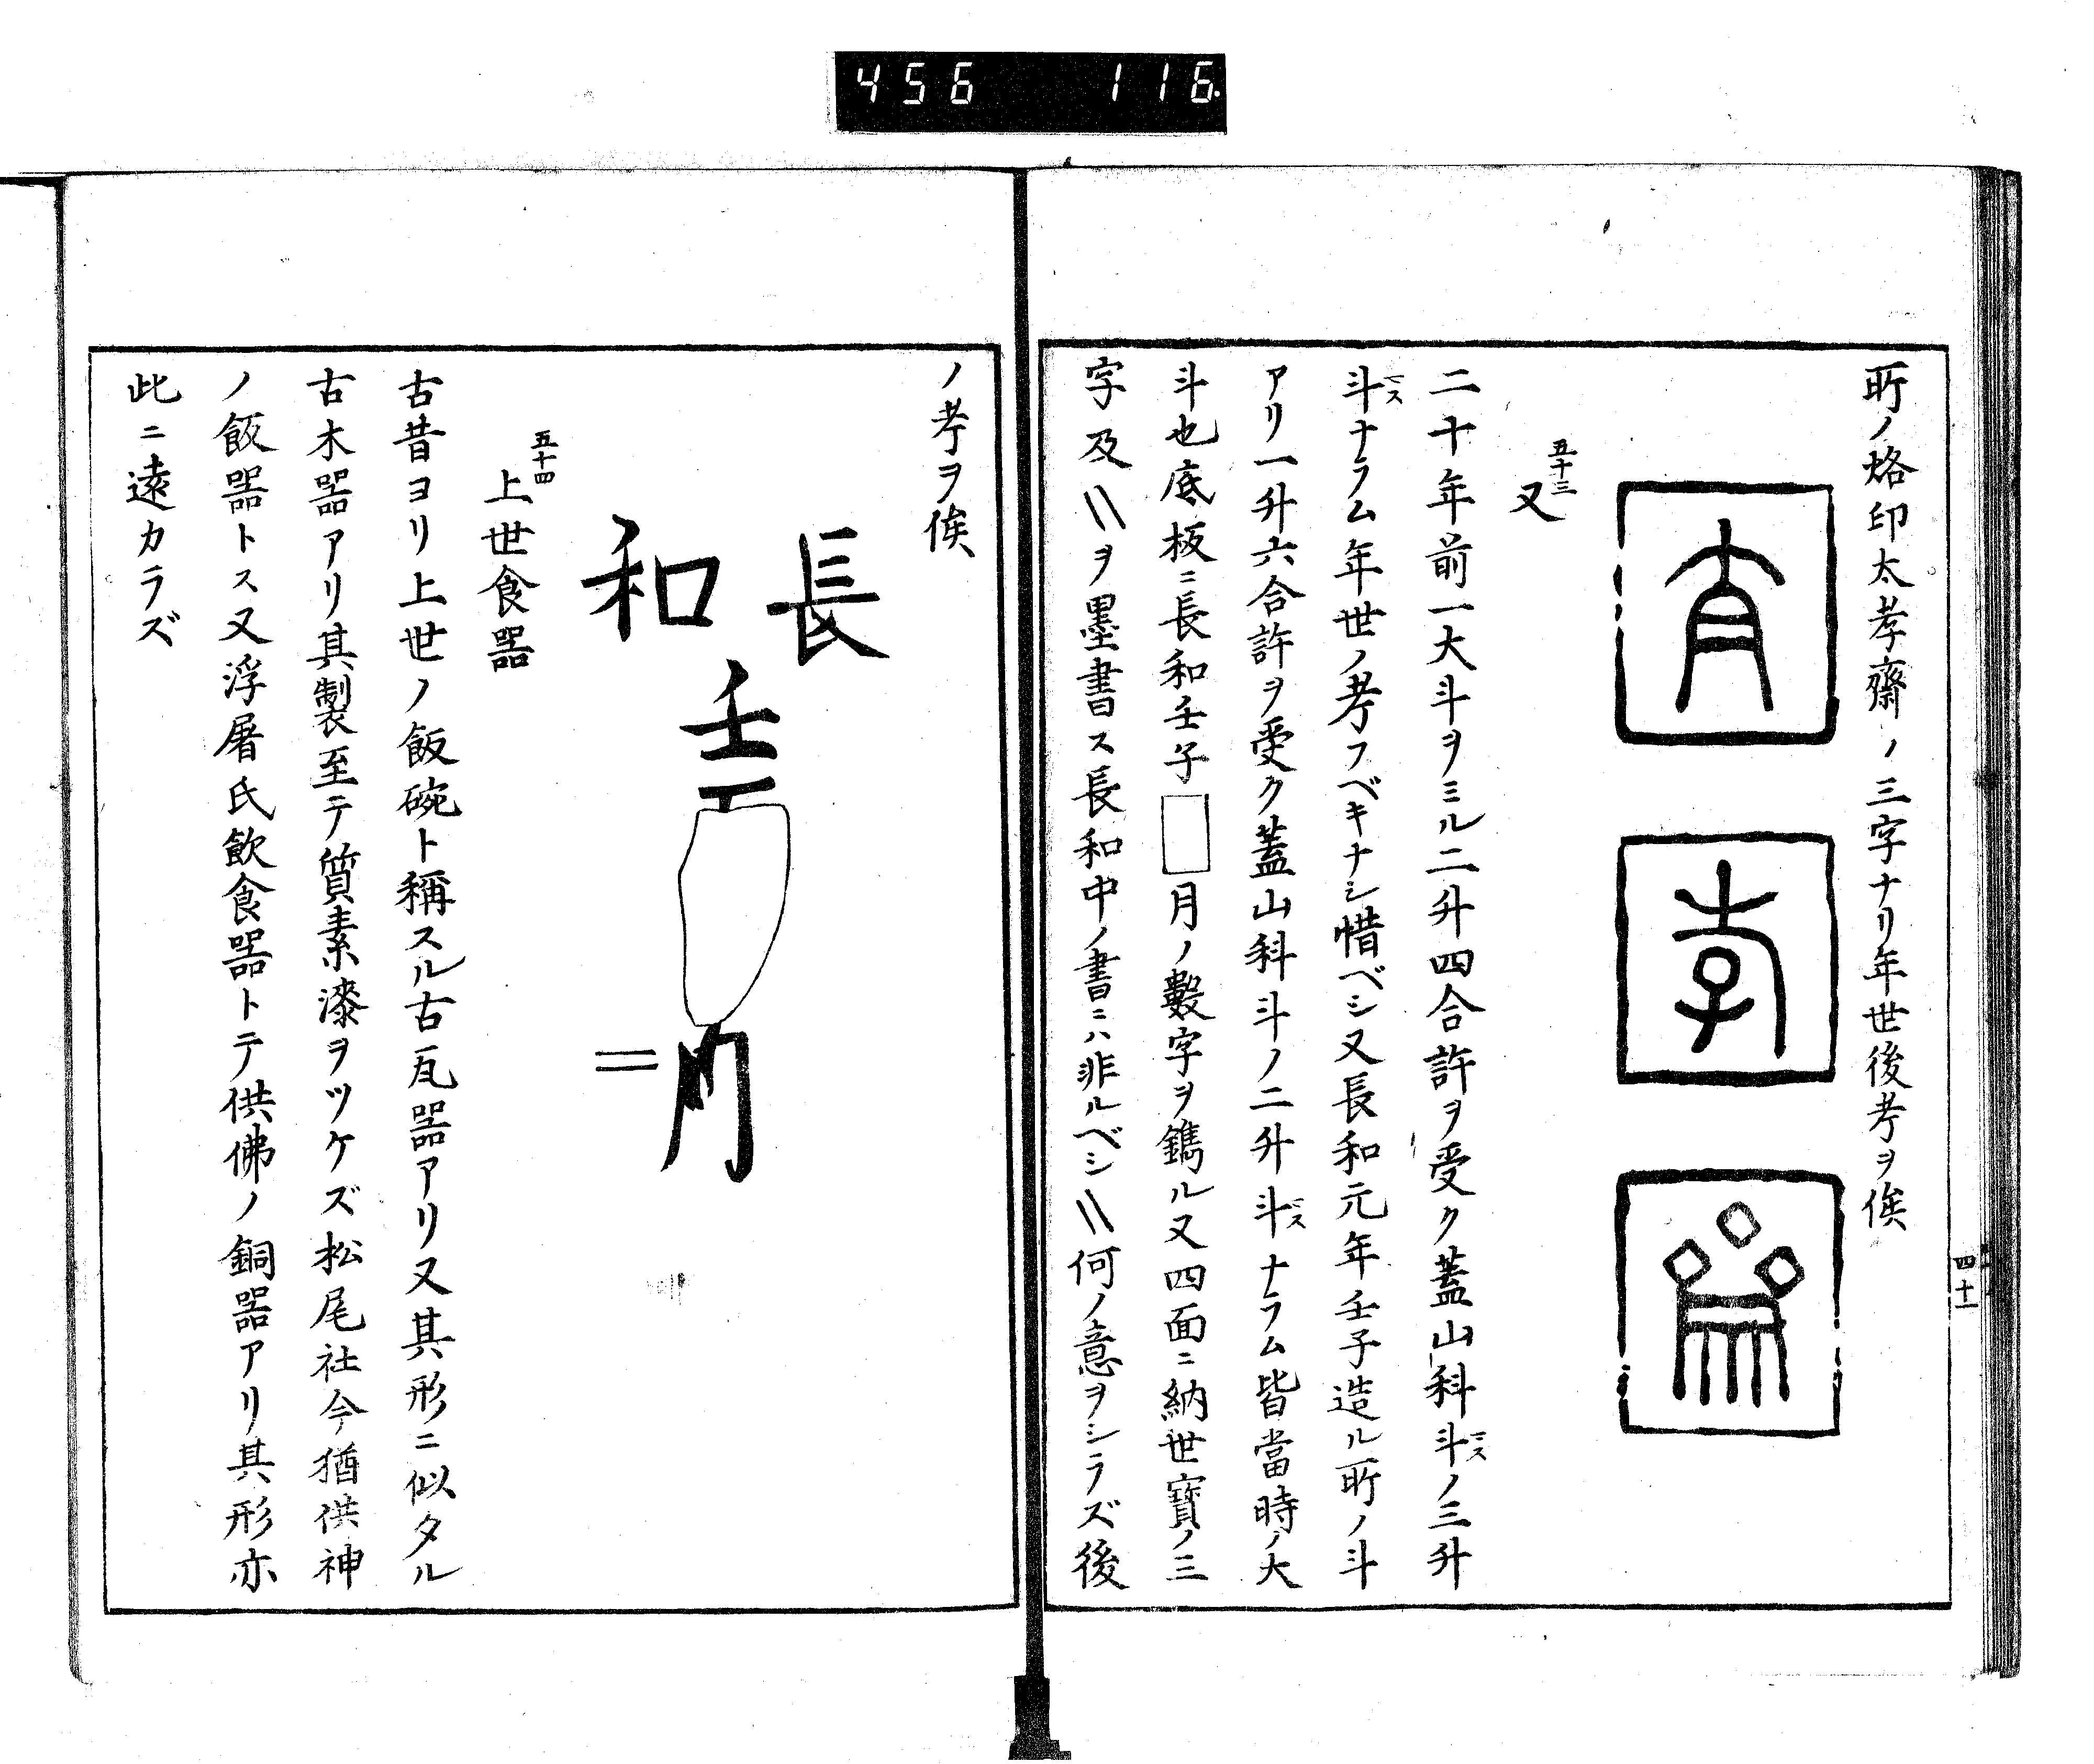 456 116.
所ノ烙印太孝齋ノ三字ナリ年世後考ヲ俟
四十一
五十三
又
二十年前一大斗ヲミル二升四合許ヲ受ク蓋山科斗ノ三升
斗ナラム年世ノ考フベキナシ惜ベシ又長和元年壬子造ル所ノ斗
アリ一升六合許ヲ受ク蓋山科斗ノ二升斗ナラム皆當時ノ大
斗也底板ニ長和壬子□月ノ數字ヲ鐫ル又四面ニ納世寳ノ三
字及〵〵ヲ墨書ス長和中ノ書ニハ非ルベシ〵〵何ノ意ヲシラズ後
ノ考ヲ俟
長
和
壬
月
二
五十四
上世食器
古昔ヨリ上世ノ飯碗ト稱スル古瓦器アリ又其形ニ似タル
古木器アリ其製至テ質素漆ヲツケズ松尾社今猶供神
ノ飯器トス又浮屠氏飲食器トテ供佛ノ銅器アリ其形亦
此ニ遠カラズ